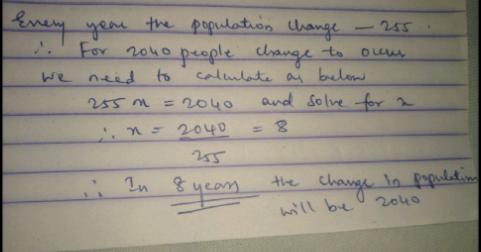 Every year the population change – 255.
∴ For 2040 people change to occur
we need to calculate as below
255 x = 2040 and solve for x
∴ x = 2040 = 8
255
∴ In 8 years the change in population
will be 2040